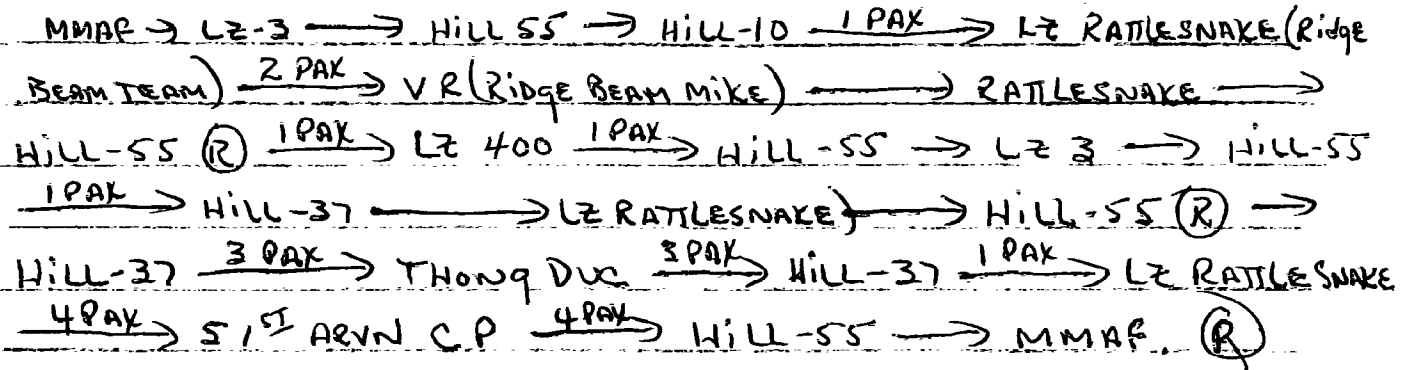 MMAF → LZ-3 → HiLL 55 → HiLL-10 1 PAX → LZ RATTLESNAKE (RidgE
BEAM TEAM) 2 PAX → V R (RiDgE BEAM MiKE) → RATTLESNAKE →
HiLL-55 Ⓡ 1 PAX → LZ 400 1 PAX → HiLL-55 → LZ 3 → HiLL-55
1 PAX → HiLL-37 → LZ RATTLESNAKE) → HiLL-55 Ⓡ →
HiLL-37 3 PAX → THONg DUC 3 PAX → HiLL-37 1 PAX → LZ RATTLESNAKE
4 PAX → 51ST ARVN C P 4 PAX → HiLL-55 → MMAF. Ⓡ